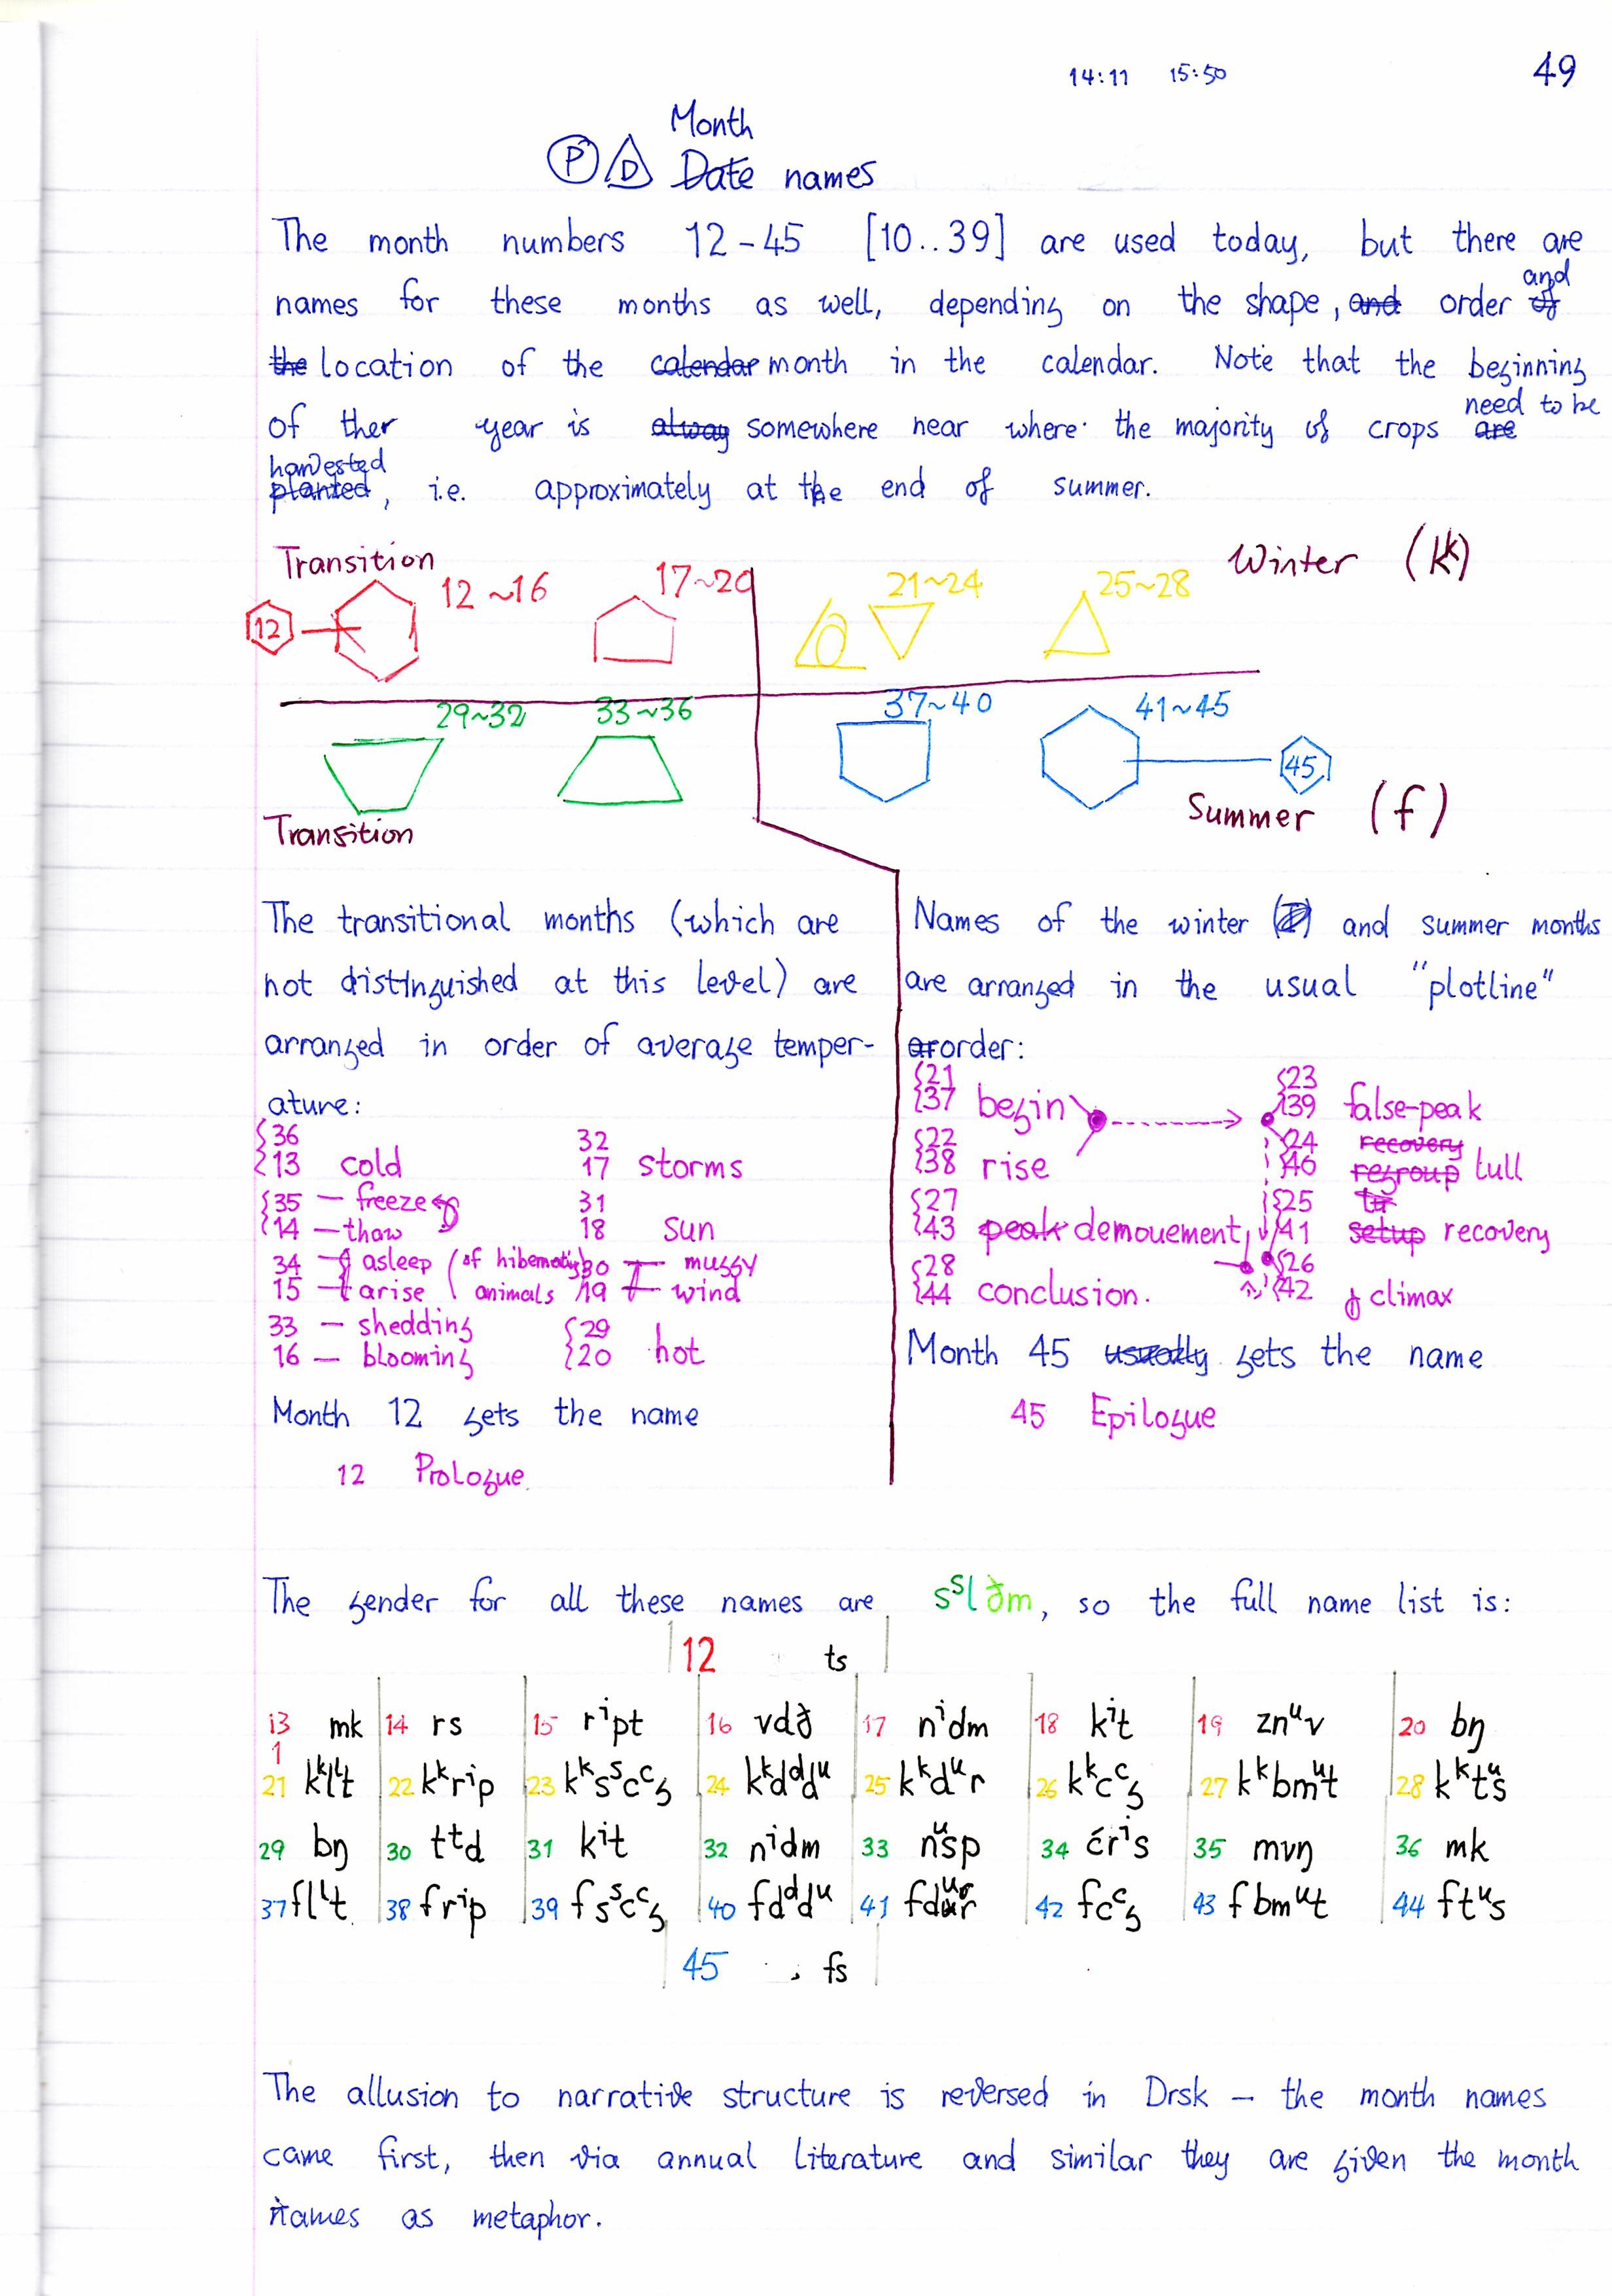 14:11 15:50 49
Month
P D Date names
The month numbers 12-45 [10..39] are used today, but there are
and
names for these months as well, depending on the shape, and order of
the location of the calendar month in the calendar. Note that the beginning
need to be
of ther year is alway somewhere near where the majority of crops are
harvested
planted, i.e. approximately at the end of summer.
Transition Winter (kᵏ)
12 12~16 17~20 21~24 25~28
29~32 33~36 37~40 41~45 45
Transition Summer (f)
The transitional months (which are
not distinguished at this level) are
arranged in order of average temper-
ature:
36
13 cold
32
17 storms
35 – freeze
14 – thaw
31
18 sun
34 asleep (of hibernating
15 arise animals
30 muggy
19 wind
33 – shedding
16 – blooming
29
20 hot
Month 12 gets the name
12 Prologue
Names of the winter and summer months
are arranged in the usual "plotline"
order:
21
37 begin
23
39 false-peak
22
38 rise
24 recovery
46 regroup lull
27
43 peak demouement
25
41 setup recovery
28
44 conclusion.
26
42 climax
Month 45 usually gets the name
45 Epilogue
The gender for all these names are sˢlðm, so the full name list is:
12 ts
13 mk 14 rs 15 rⁱpt 16 vdð 17 nⁱdm 18 kⁱt 19 znᵘv 20 bŋ
21 kᵏlᶥt 22 kᵏrip 23 kᵏsˢcᶜg 24 kᵏdᵈdᵘ 25 kᵏdᵘr 26 kᵏcᶜg 27 kᵏbmᵘt 28 kᵏtᵘs
29 bŋ 30 tᵗd 31 kⁱt 32 nⁱdm 33 nᵘsp 34 crⁱs 35 mvŋ 36 mk
37 flᶥt 38 frip 39 fsˢcᶜg 40 fdᵈdᵘ 41 fdᵘr 42 fcᶜg 43 fbmᵘt 44 ftᵘs
45 fs
The allusion to narrative structure is reversed in Drsk – the month names
came first, then via annual literature and similar they are given the month
names as metaphor.